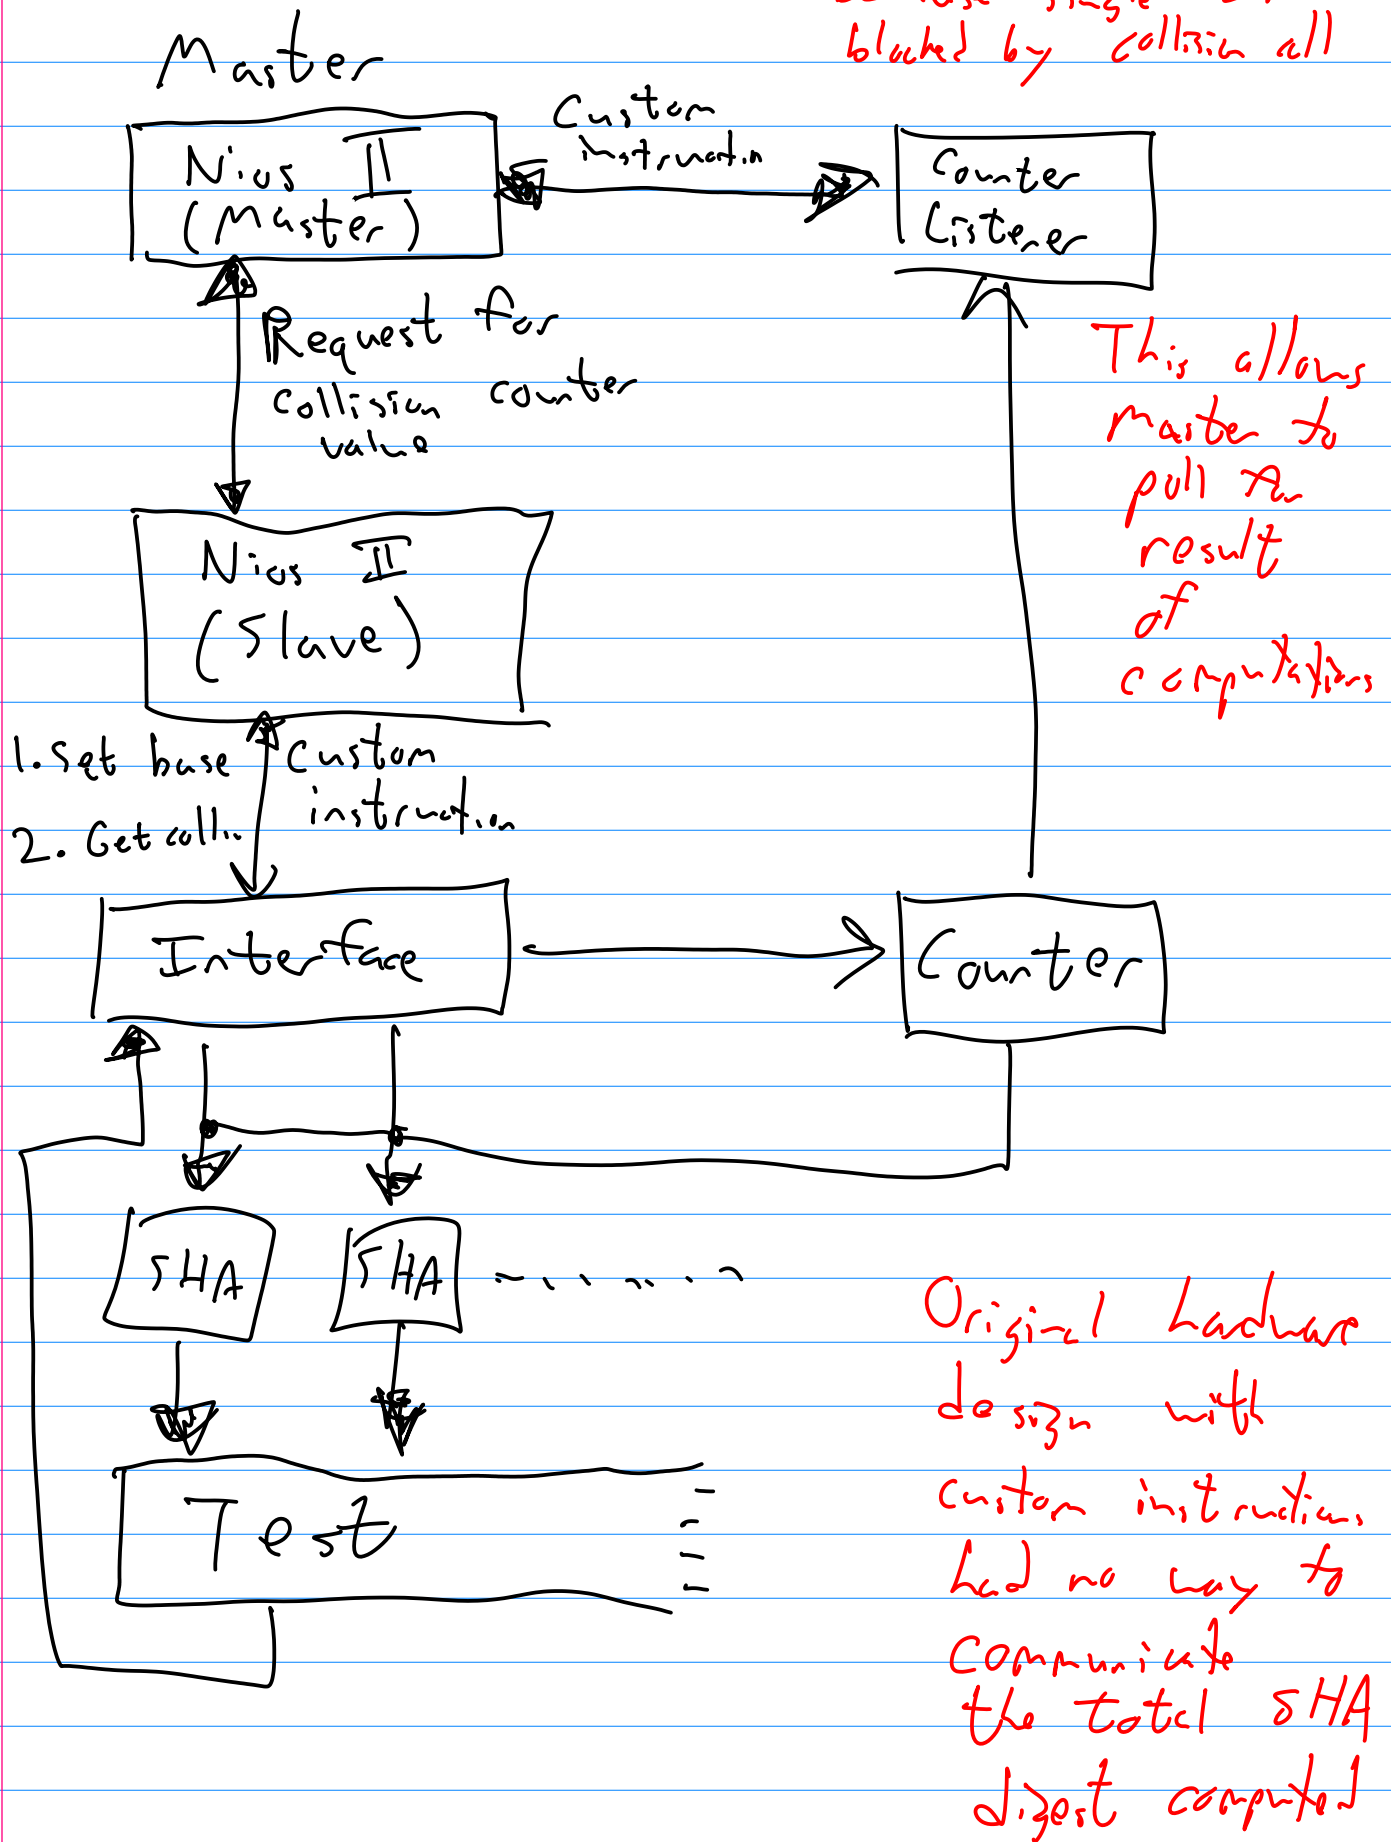 single
blocked by collision all
Master
Custom
instruction
Nios II
(Master)
Counter
Listener
Request for
collision counter
value
This allows
master to
poll for
result
of
computations
Nios II
(Slave)
1. Set base
2. Get colli.
Custom
instruction
Interface
Counter
SHA
SHA
Test
Original hardware
design with
custom instructions
had no way to
communicate
the total SHA
digest computed